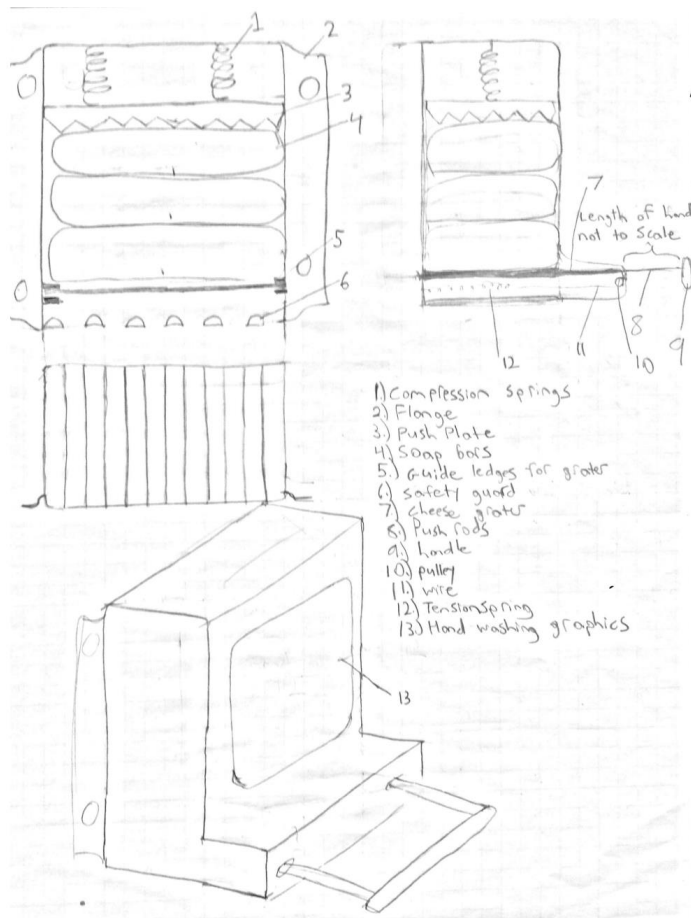 1
2
3
4
5
6
7
Length of hand
not to scale
8
9
10
11
12
1.) Compression springs
2.) Flange
3.) Push Plate
4.) Soap bars
5.) Guide ledges for grater
6.) safety guard
7.) cheese grater
8.) Push rods
9.) handle
10.) pulley
11.) wire
12.) Tension spring
13.) Hand washing graphics
13